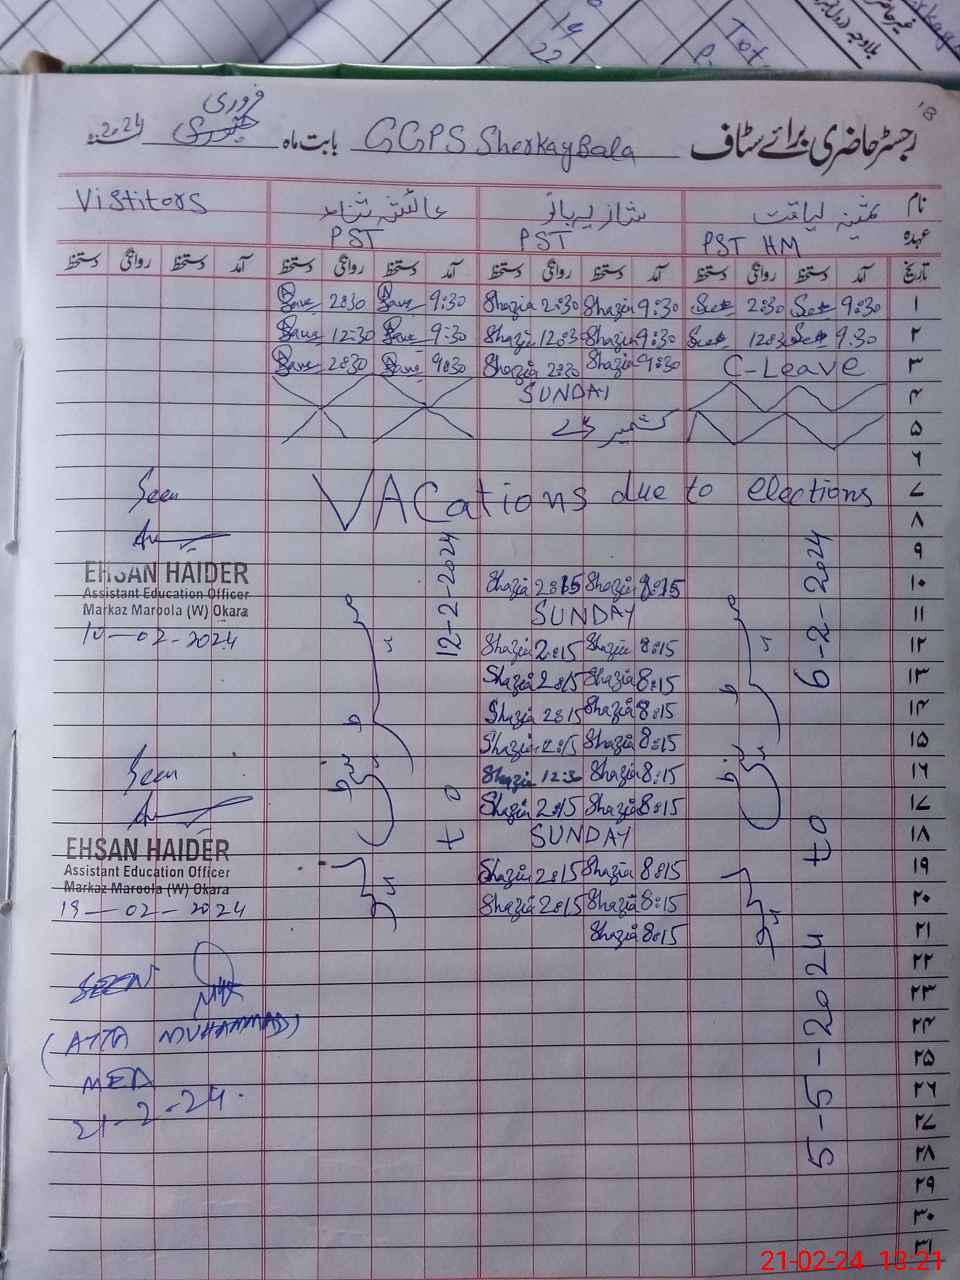 رجسٹر حاضری برائے سٹاف GGPS SherkayBala بابت ماہ فروری 2024ء
نام ثمینہ لیاقت شازیہ بانو عائشہ ثناء Vistitors
عہدہ PST HM PST PST
تاریخ آمد دستخط روانگی دستخط آمد دستخط روانگی دستخط آمد دستخط روانگی دستخط آمد دستخط روانگی دستخط
۱ 9:30 2:30 9:30 Shazia 2:30 Shazia 9:30 2:30
۲ 9:30 12:30 9:30 Shazia 12:30 Shazia 9:30 12:30
۳ C-Leave 9:30 Shazia 2:30 Shazia 9:30 2:30
۴ SUNDAY
۵ کشمیر ڈے
۶
۷ VACations due to elections
۸
۹
۱۰ 8:15 Shazia 2:15 Shazia
۱۱ SUNDAY
۱۲ 8:15 Shazia 2:15 Shazia
۱۳ 8:15 Shazia 2:15 Shazia
۱۴ 8:15 Shazia 2:15 Shazia
۱۵ 8:15 Shazia 2:15 Shazia
۱۶ 8:15 Shazia 12:30 Shazia
۱۷ 8:15 Shazia 2:15 Shazia
۱۸ SUNDAY
۱۹ 8:15 Shazia 2:15 Shazia
۲۰ 8:15 Shazia 2:15 Shazia
۲۱ 8:15 Shazia
۲۲
۲۳
۲۴
۲۵
۲۶
۲۷
۲۸
۲۹
۳۰
۳۱
6-2-2024 to 5-5-2024
12-2-2024 to
Seen
EHSAN HAIDER
Assistant Education Officer
Markaz Maroola (W) Okara
10-02-2024
Seen
EHSAN HAIDER
Assistant Education Officer
Markaz Maroola (W) Okara
19-02-2024
SEEN
(ATTA MUHAMMAD)
MEA
21-2-24.
21-02-24 18:21